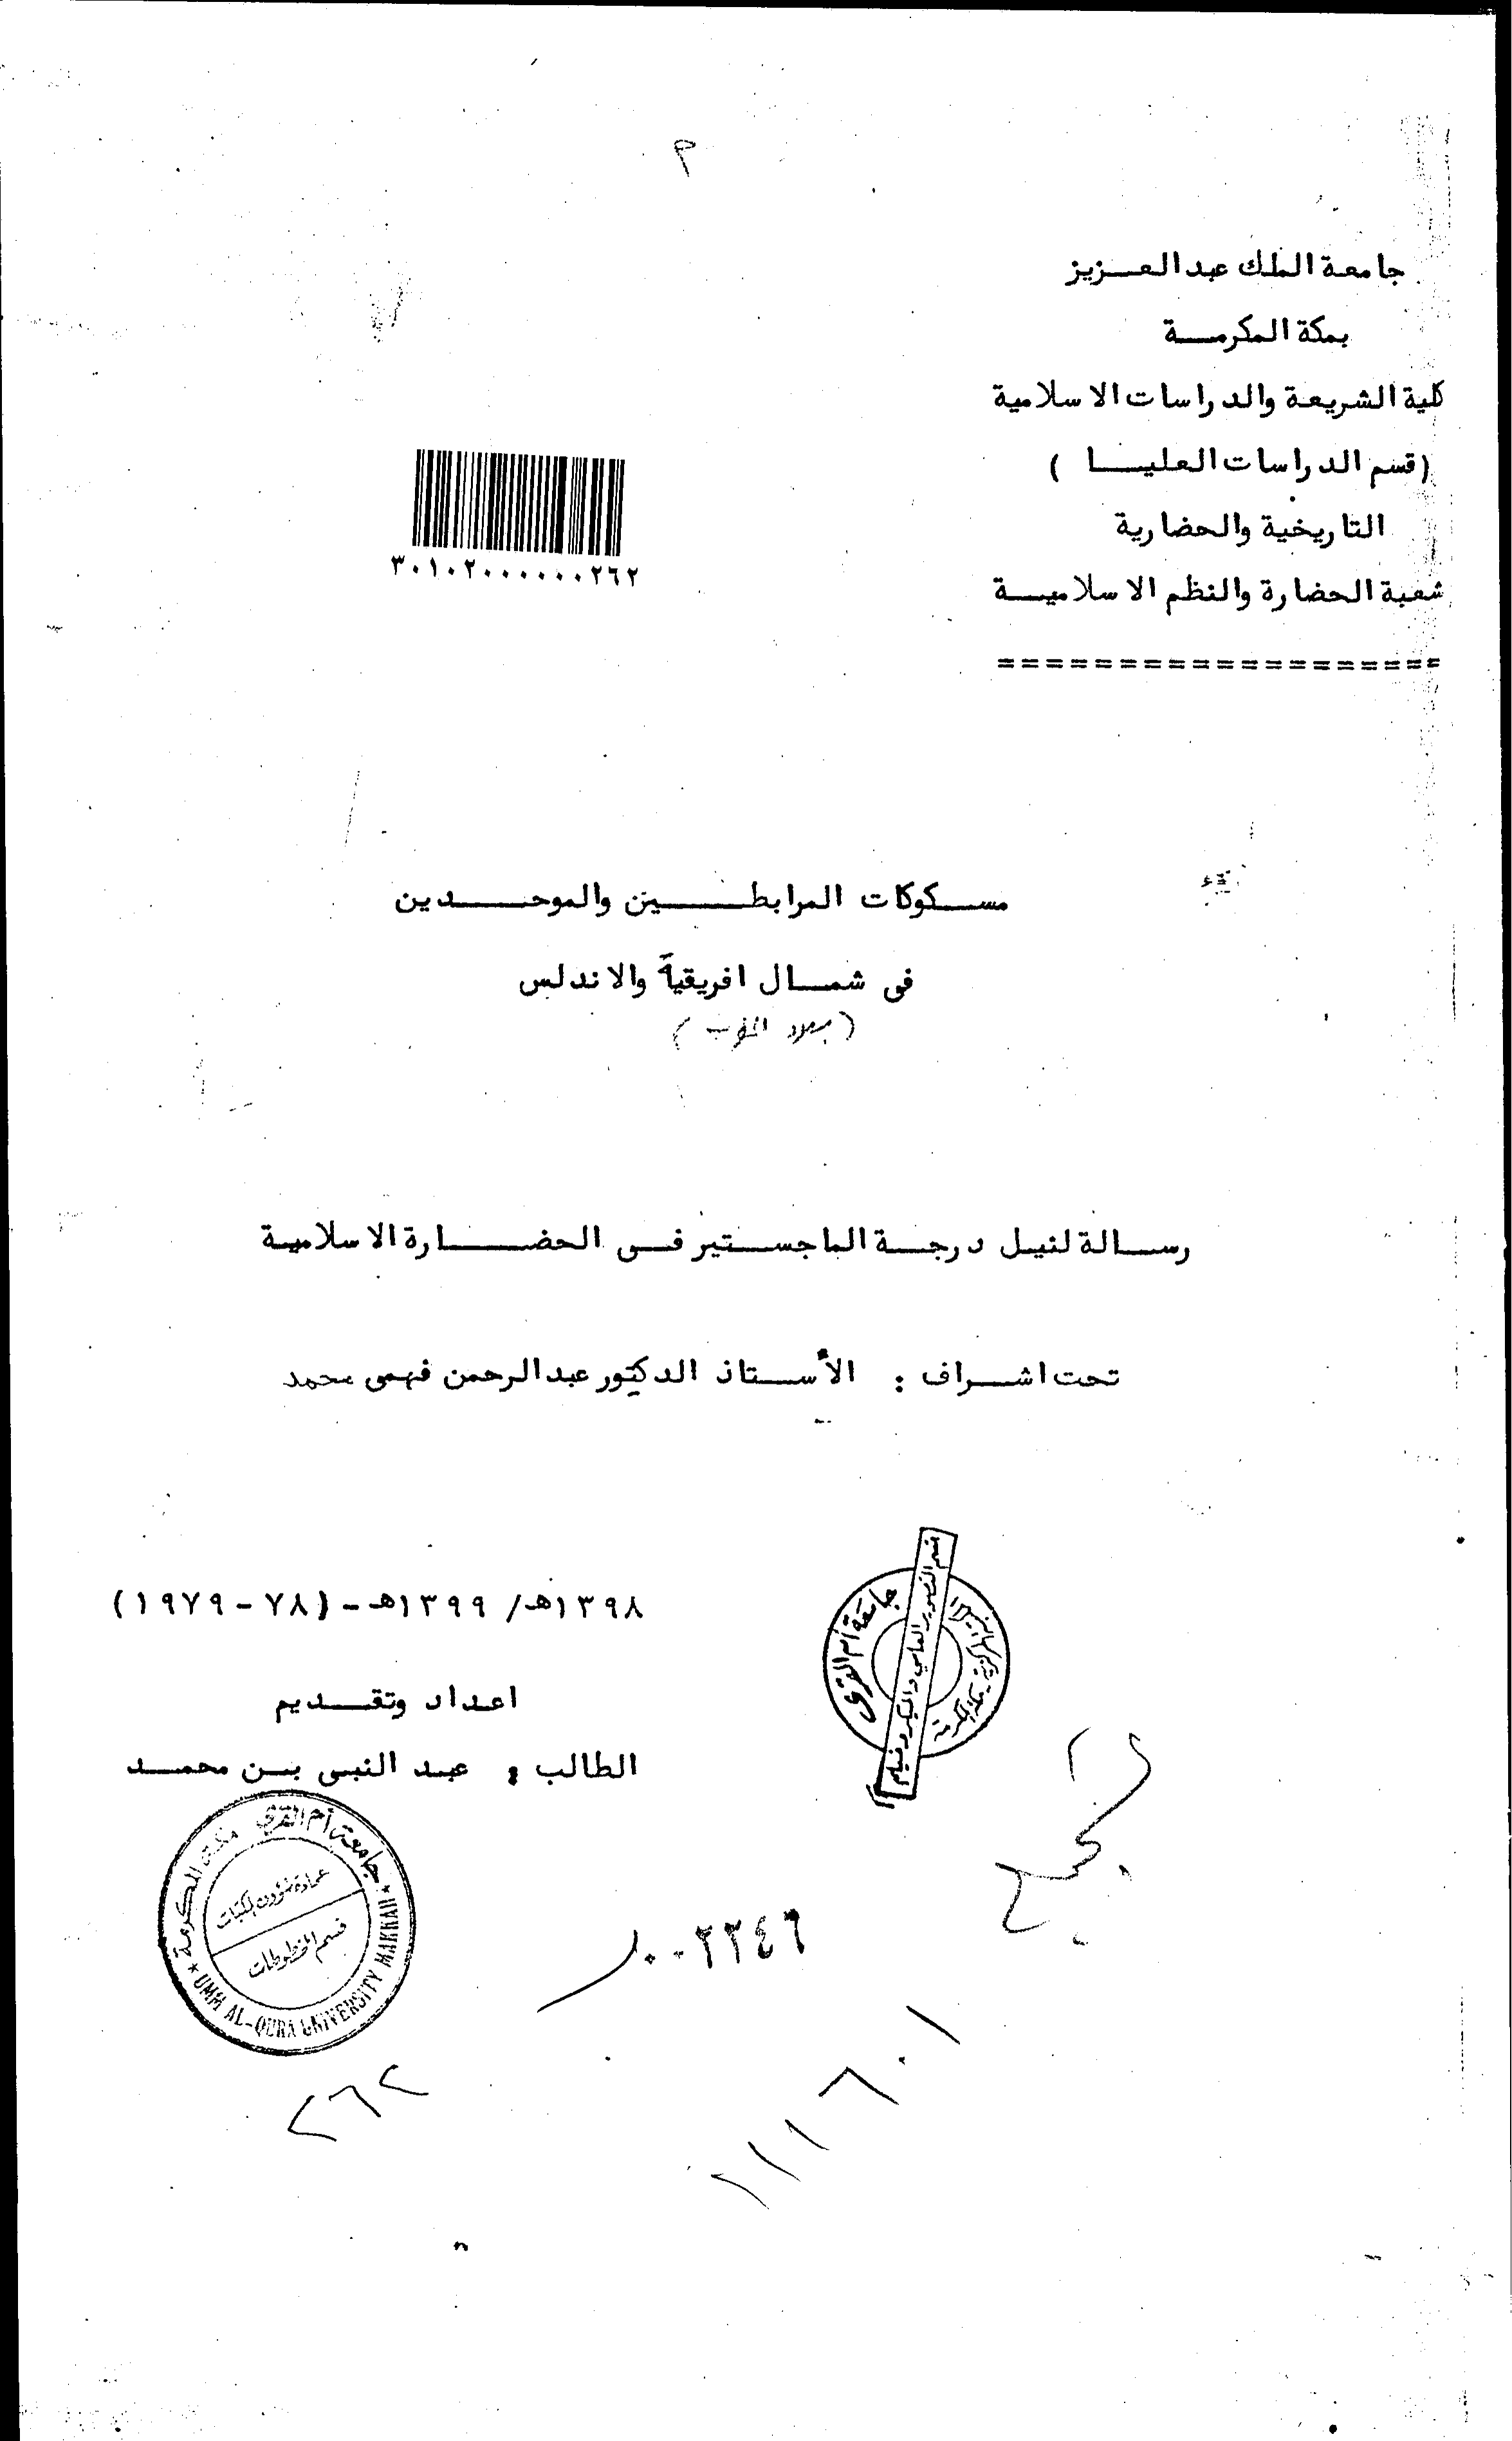 م
جامعة الملك عبد العزيز
بمكة المكرمة
كلية الشريعة والدراسات الاسلامية
(قسم الدراسات العليا)
التاريخية والحضارية
شعبة الحضارة والنظم الاسلامية
===================
٣٠١٠٢٠٠٠٠٠٠٢٦٢
مسكوكات المرابطين والموحدين
فى شمال افريقية والاندلس
(بلاد المغرب)
رسالة لنيل درجة الماجستير فى الحضارة الاسلامية
تحت اشراف : الأستاذ الدكتور عبد الرحمن فهمى محمد
١٣٩٨هـ/ ١٣٩٩هـ - (٧٨ - ١٩٧٩)
اعداد وتقديم
الطالب : عبد النبى بن محمد
جامعة أم القرى
قسم التصوير العلمي والميكروفيلم
جامعة أم القرى مكة المكرمة
عمادة شؤون المكتبات
قسم المخطوطات
UMM AL-QURA UNIVERSITY MAKKAH
٠٠٢٢٤٦
٢٦٢
١١١٦٠١